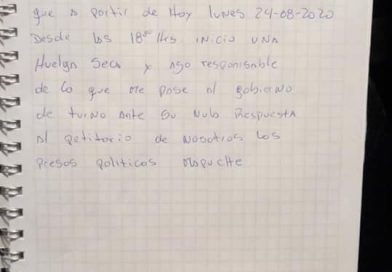 que a partir de Hoy lunes 24-08-2020
Desde las 18:00 Hrs inicio UNA
Huelga Seca y ago responsable
de lo que me pase al gobierno
de turno ante su Nula Respuesta
al petitorio de nosotros los
presos políticos mapuche